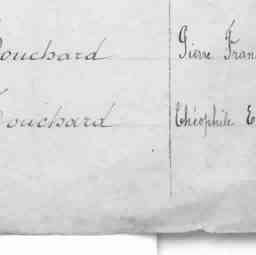 Bouchard Pierre Fran
Bouchard Théophile E